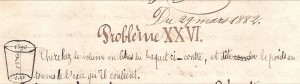 Du 29 mars 1882.
Problème XXVI.
Chercher le volume en litres du baquet ci-contre, et le poids en
tonnes de l'eau qu'il contient.